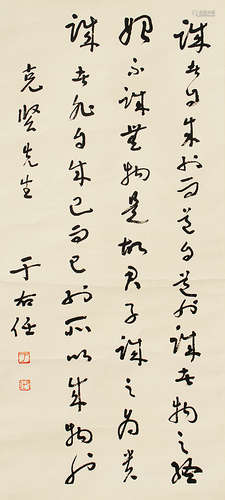 誠者自成也而道自道也誠者物之終
始不誠無物是故君子誠之為貴
誠者非自成己而已也所以成物也
克賢先生
于右任